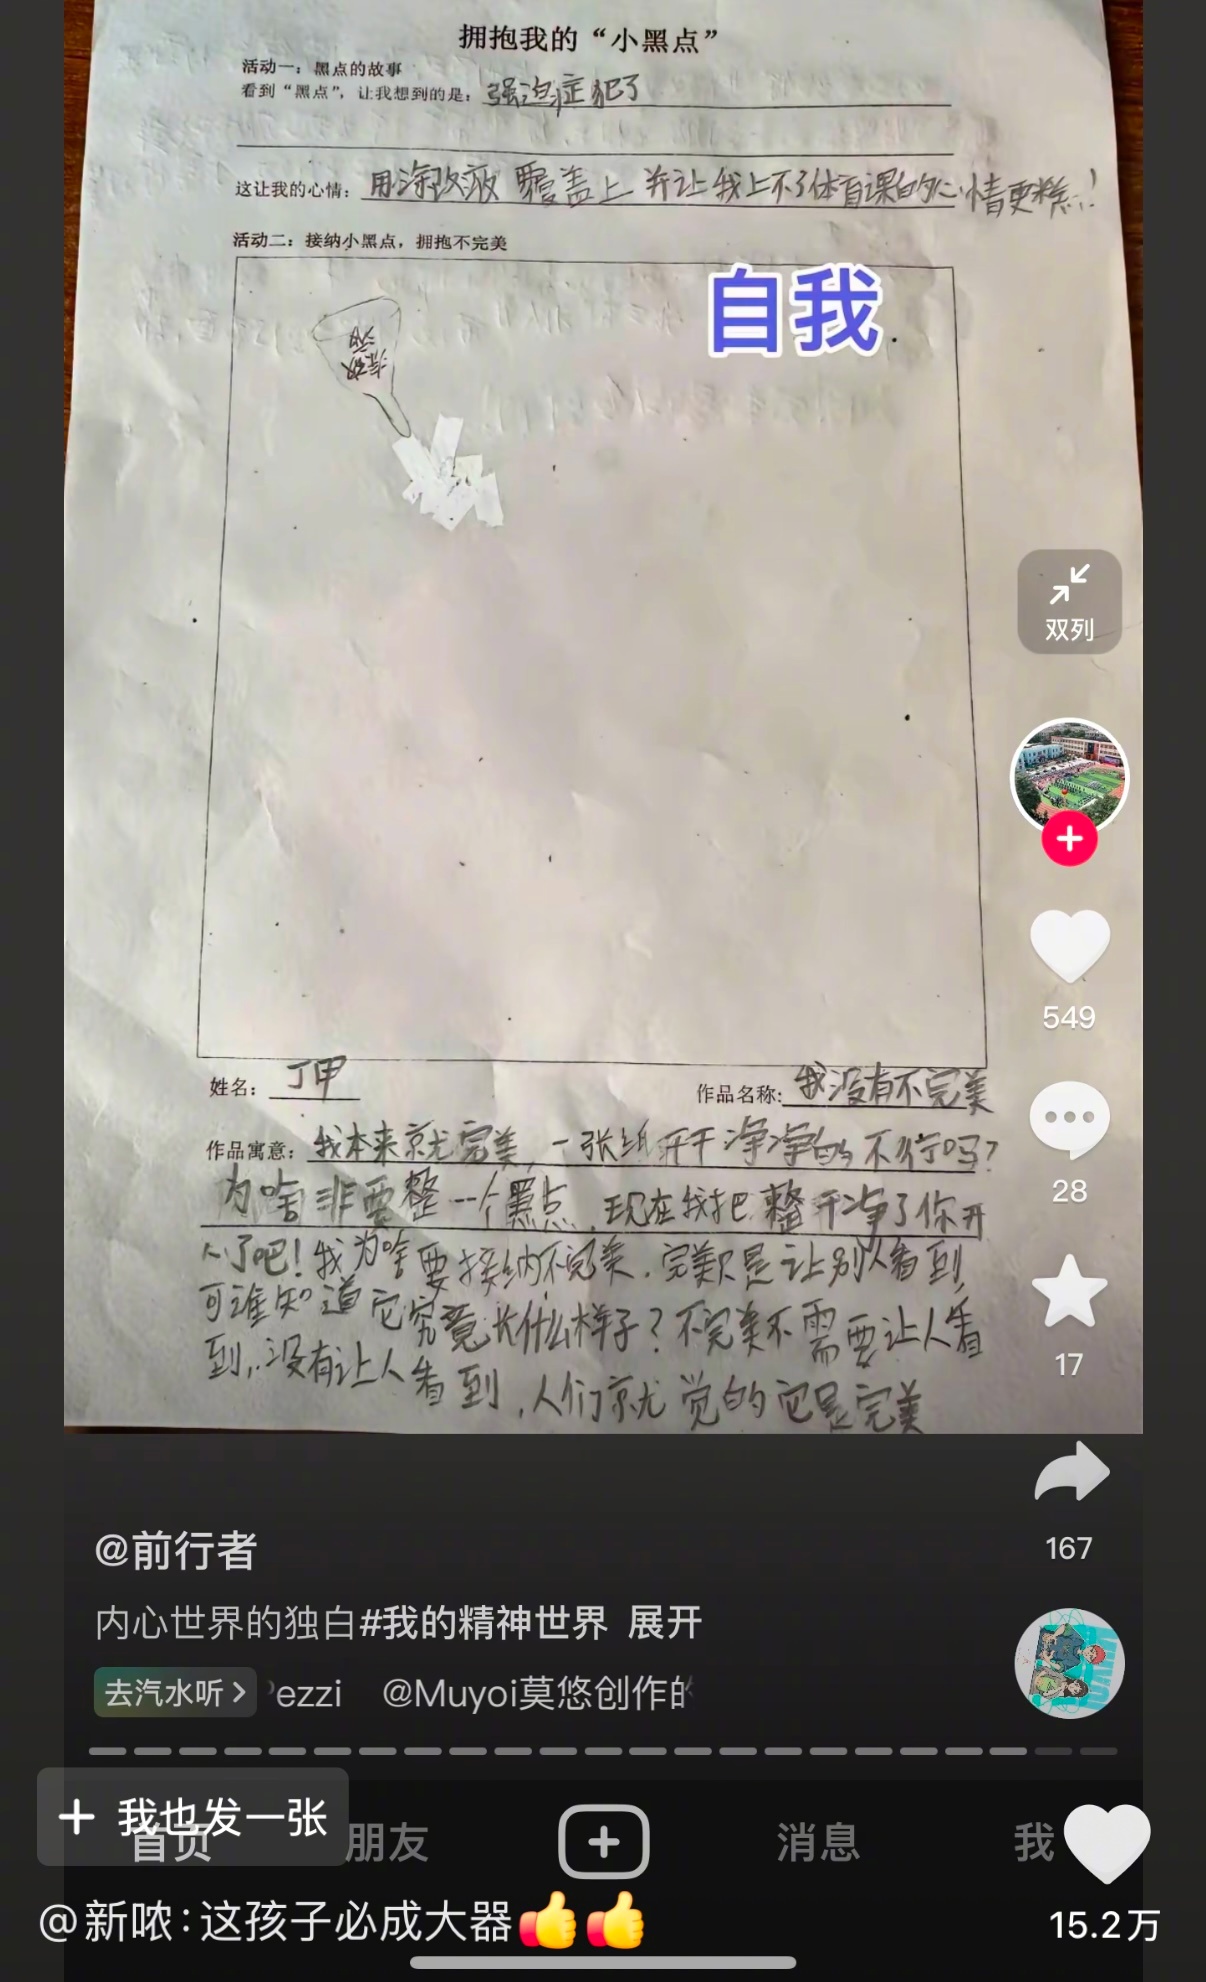 拥抱我的“小黑点”
活动一：黑点的故事
看到“黑点”，让我想到的是：强迫症犯了
这让我的心情：用涂改液 覆盖上 并让我上不了体育课的心情更糕!
活动二：接纳小黑点，拥抱不完美
自我
双列
549
姓名：丁甲
作品名称：我没有不完美
28
作品寓意：我本来就完美，一张纸干干净净的不行吗?
为啥非要整一个黑点，现在我把整干净了你开
心了吧！我为啥要接纳不完美．完美只是让别人看到，
可谁知道它究竟长什么样子？不完美不需要让人看
到，没有让人看到，人们就觉的它是完美
17
167
@前行者
内心世界的独白#我的精神世界 展开
去汽水听 > ezzi @Muyoi莫悠创作的
+ 我也发一张
首页 朋友 消息 我
@新哝：这孩子必成大器👍👍
15.2万